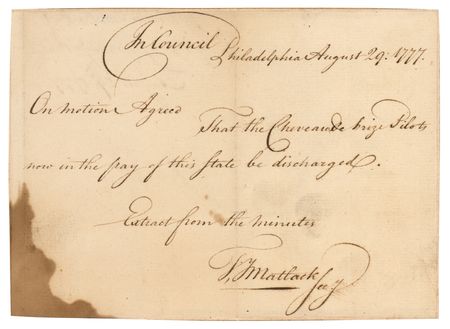 In Council Philadelphia August 29: 1777.
On motion Agreed
That the Cheveaude brize Pilots
now in the pay of this State be discharged.
Extract from the minutes
T, Matlack Secy